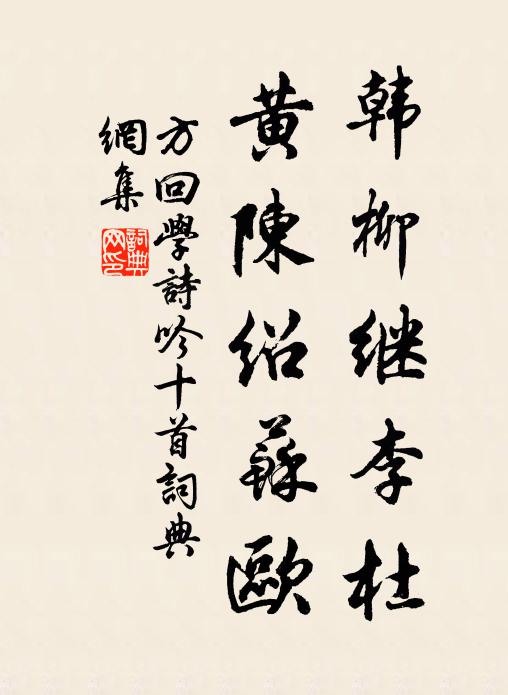 韩柳继李杜
黄陳绍蘇歐
方回學詩吟十首詞典
網集
詞典
网印